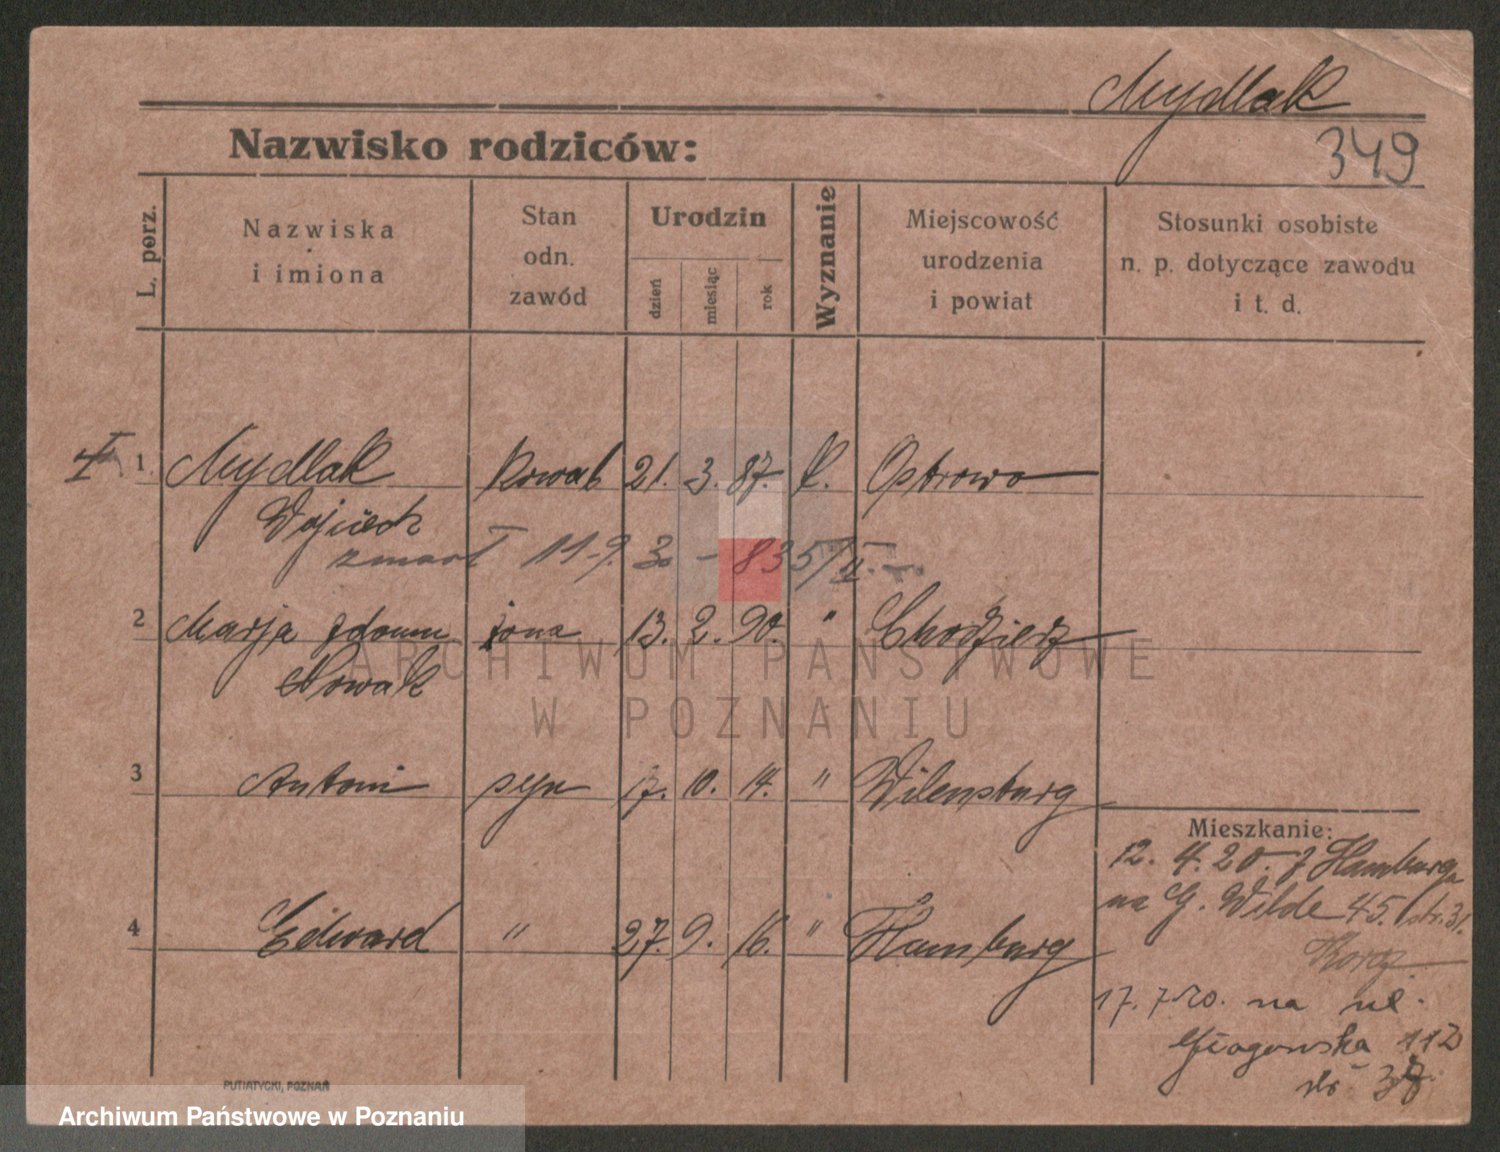 Mydlak
349
Nazwisko rodziców:
L. porz.
Nazwiska
i imiona
Stan
odn.
zawód
Urodzin
dzień
miesiąc
rok
Wyznanie
Miejscowość
urodzenia
i powiat
Stosunki osobiste
n. p. dotyczące zawodu
i t. d.
I. 1. Mydlak kowal 21. 3. 87. k. Ostrowo
Wojciech
zmarł 11-9. 30 - 835/II.
2 Marja zdomu żona 13. 2. 90. " Chodzież
Nowak
3 Antoni syn 17. 10. 14. " Wilensburg
Mieszkanie:
12. 4. 20. z Hamburga
na G. Wilde 45. str. 31.
4 Edward " 27. 9. 16. " Hamburg
17. 7. 20. na ul.
Głogowska 112
PUTIATYCKI, POZNAŃ
ARCHIWUM PAŃSTWOWE
W POZNANIU
Archiwum Państwowe w Poznaniu